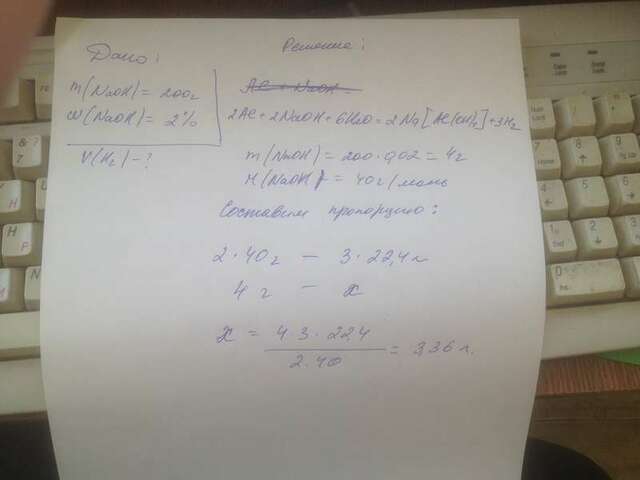 Дано:
m(NaOH) = 200г
ω(NaOH) = 2%
V(H₂) - ?
Решение:
Al + NaOH =
2Al + 2NaOH + 6H₂O = 2Na[Al(OH)₄] + 3H₂
m(NaOH) = 200 · 0,02 = 4г
M(NaOH) = 40г/моль
Составим пропорцию:
2 · 40г — 3 · 22,4л
4 г — x
x = 4 · 3 · 22,4
2 · 40
= 3,36 л.